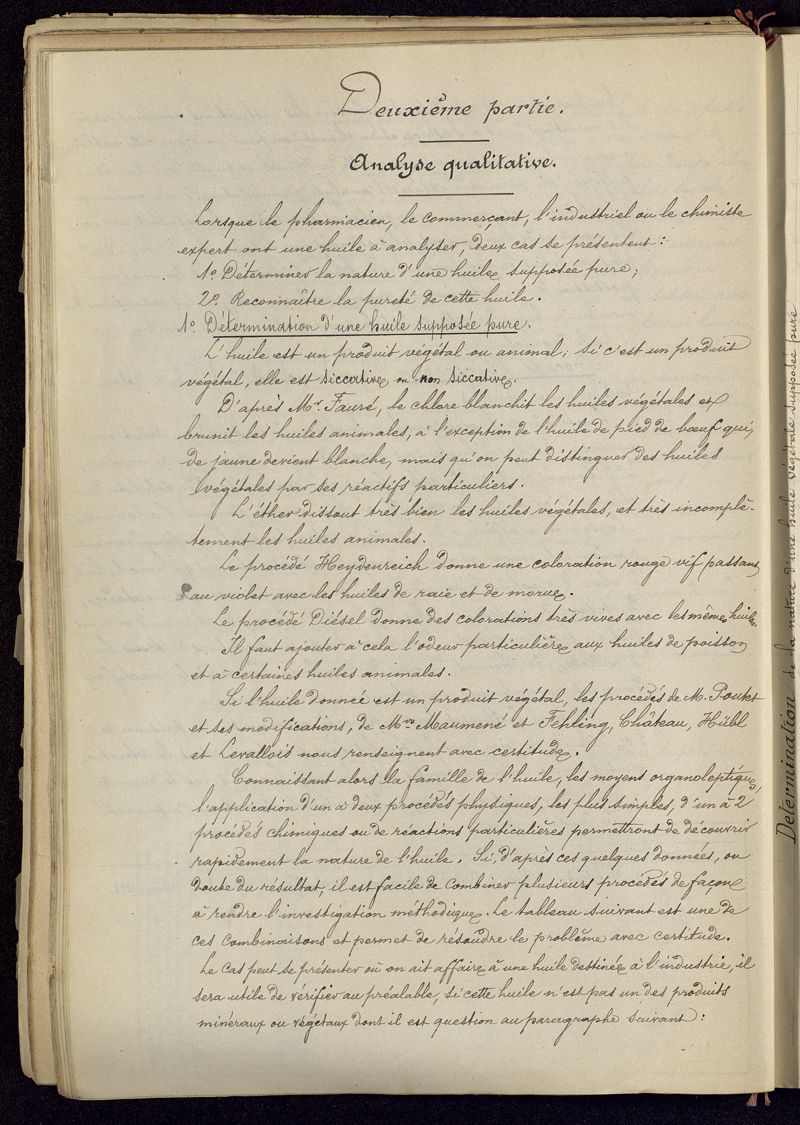 Deuxième partie.
Analyse qualitative.
Lorsque le pharmacien, le commerçant, l'industriel ou le chimiste
expert ont une huile à analyser, deux cas se présentent :
1º. Déterminer la nature d'une huile supposée pure ;
2º. Reconnaître la pureté de cette huile.
1º. Détermination d'une huile supposée pure.
L'huile est un produit végétal ou animal ; si c'est un produit
végétal, elle est siccative ou non siccative.
D'après Mr. Fauré, le chlore blanchit les huiles végétales et
brunit les huiles animales, à l'exception de l'huile de pied de bœuf qui,
de jaune devient blanche, mais qu'on peut distinguer des huiles
végétales par ses réactifs particuliers.
L'éther dissout très bien les huiles végétales, et très incomplè-
tement les huiles animales.
Le procédé Heydenreich donne une coloration rouge vif passant
au violet avec les huiles de raie et de morue.
Le procédé Diésel donne des colorations très vives avec les même huiles.
Il faut ajouter à cela l'odeur particulière aux huiles de poisson
et à certaines huiles animales.
Si l'huile donnée est un produit végétal, les procédés de M. Poutet
et ses modifications, de Mrs Maumené et Fehling, Château, Hübl
et Levallois nous renseignent avec certitude.
Connaissant alors la famille de l'huile, les moyens organoleptiques,
l'application d'un à deux procédés physiques, les plus simples, d'un à 2
procédés chimiques ou de réactions particulières permettront de découvrir
rapidement la nature de l'huile. Si, d'après ces quelques données, on
doute du résultat, il est facile de combiner plusieurs procédés de façon
à rendre l'investigation méthodique. Le tableau suivant est une de
ces combinaisons et permet de résoudre le problème avec certitude.
Le cas peut se présenter où on ait affaire à une huile destinée à l'industrie, il
sera utile de vérifier au préalable, si cette huile n'est pas un des produits
minéraux ou végétaux dont il est question au paragraphe suivant :
Détermination de la nature d'une huile végétale supposée pure